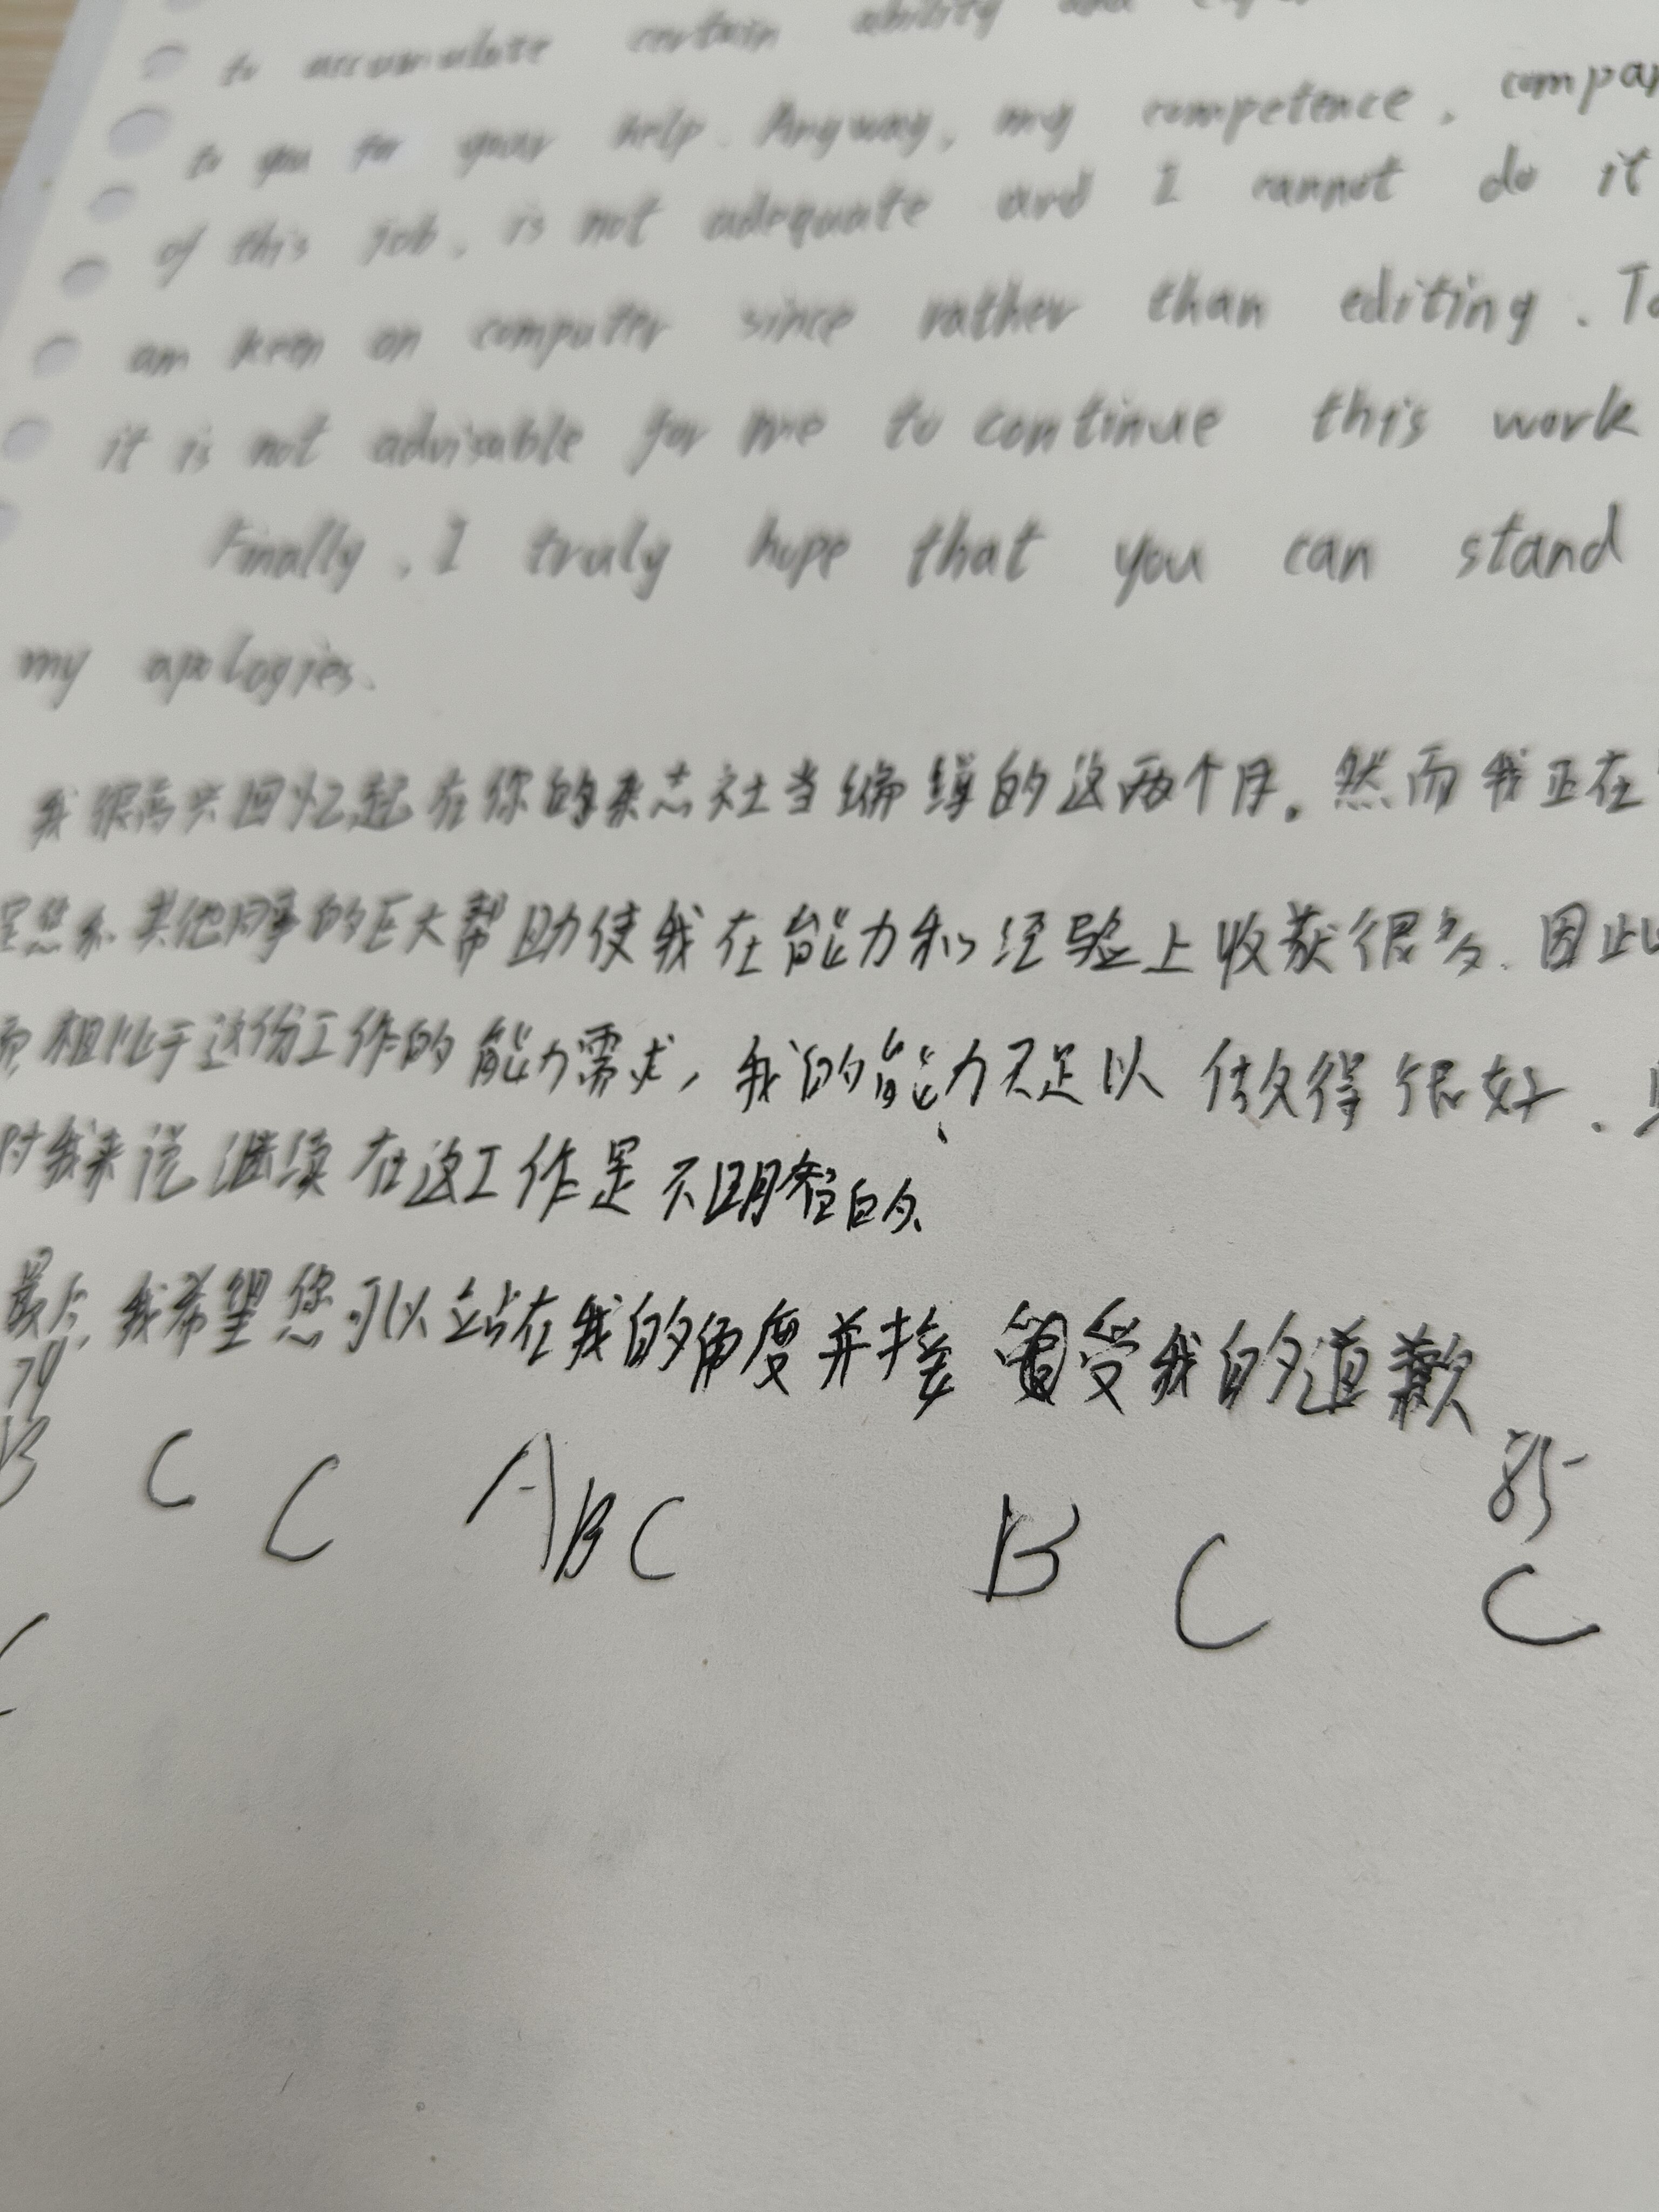 to accumulate certain ability and
to you for your help. Anyway, my competence, compar
of this job, is not adequate and I cannot do it
am keen on computer since rather than editing. To
it is not advisable for me to continue this work
Finally, I truly hope that you can stand
my apologies.
我很高兴回忆起在你的杂志社当编缉的这两个月。然而我正在
是您和其他同事的巨大帮助使我在能力和经验上收获很多. 因此
相比于这份工作的能力需求, 我的能力不足以 做得很好.
对我来说继续在这工作是不明智的.
最后,我希望您可以站在我的角度并接受我的道歉
79 85
B C C A B C B C C
C